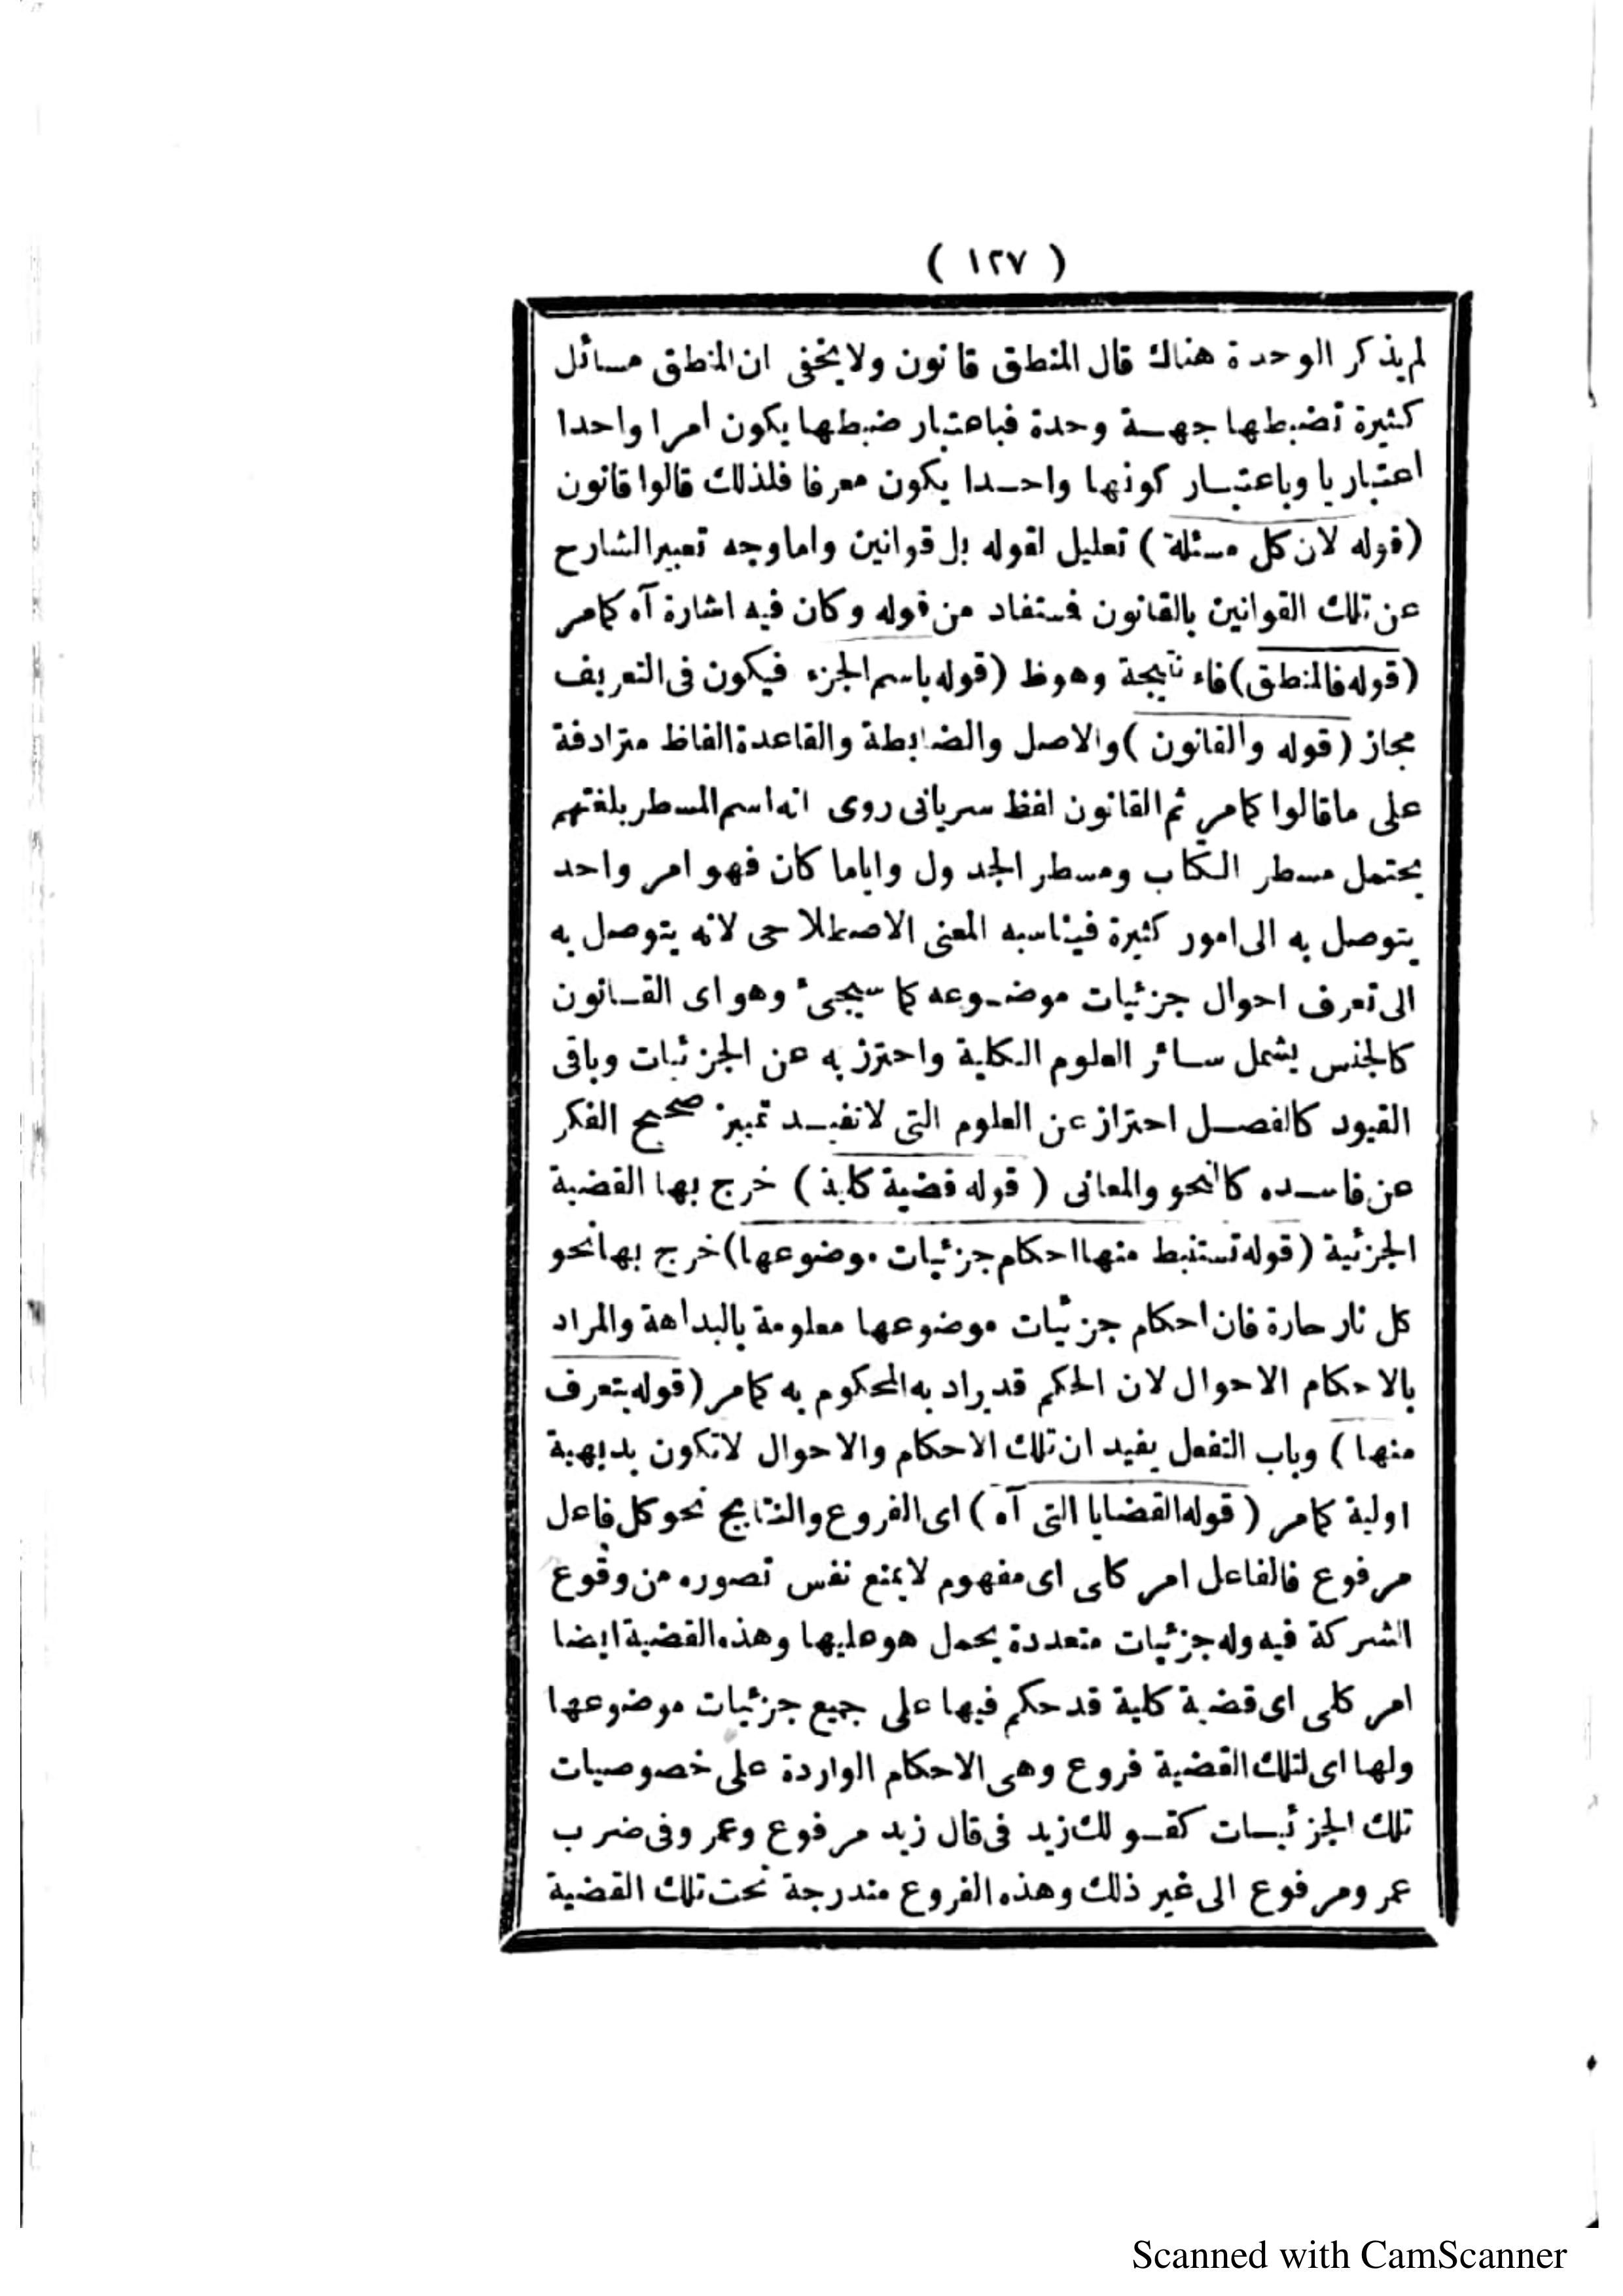 ( ١٢٧ )
لم يذكر الوحدة هناك قال المنطق قانون ولا يخفى ان المنطق مسائل
كثيرة تضبطها جهة وحدة فباعتبار ضبطها يكون امرا واحدا
اعتباريا وباعتبار كونها واحدا يكون معرفا فلذلك قالوا قانون
(قوله لان كل مسئلة) تعليل لقوله بل قوانين واما وجه تعبير الشارح
عن تلك القوانين بالقانون فستفاد من قوله وكان فيه اشارة آه كما مر
(قوله فالمنطق) فاء نتيجة وهو ظ (قوله باسم الجزء فيكون فى التعريف
مجاز (قوله والقانون) والاصل والضابطة والقاعدة الفاظ مترادفة
على ما قالوا كما مر ثم القانون لفظ سريانى روى انه اسم المسطر بلغتهم
يحتمل مسطر الكتاب ومسطر الجدول واياما كان فهو امر واحد
يتوصل به الى امور كثيرة فيناسبه المعنى الاصطلاحى لانه يتوصل به
الى تعرف احوال جزئيات موضوعه كما سيجىء وهو اى القانون
كالجنس يشمل سائر العلوم الكلية واحترز به عن الجزئيات وباقى
القيود كالفصل احتراز عن العلوم التى لا تفيد تمييز صحيح الفكر
عن فاسده كالنحو والمعانى (قوله قضية كلية) خرج بها القضية
الجزئية (قوله تستنبط منها احكام جزئيات موضوعها) خرج بها نحو
كل نار حارة فان احكام جزئيات موضوعها معلومة بالبداهة والمراد
بالاحكام الاحوال لان الحكم قد يراد به المحكوم به كما مر (قوله يتعرف
منها) وباب التفعل يفيد ان تلك الاحكام والاحوال لا تكون بديهية
اولية كما مر (قوله القضايا التى آه) اى الفروع والنتايج نحو كل فاعل
مرفوع فالفاعل امر كلى اى مفهوم لا يمنع نفس تصوره من وقوع
الشركة فيه وله جزئيات متعددة يحمل هو عليها وهذه القضية ايضا
امر كلى اى قضية كلية قد حكم فيها على جميع جزئيات موضوعها
ولها اى لتلك القضية فروع وهى الاحكام الواردة على خصوصيات
تلك الجزئيات كقولك زيد فى قال زيد مرفوع وعمر وفى ضرب
عمرو مرفوع الى غير ذلك وهذه الفروع مندرجة تحت تلك القضية
Scanned with CamScanner